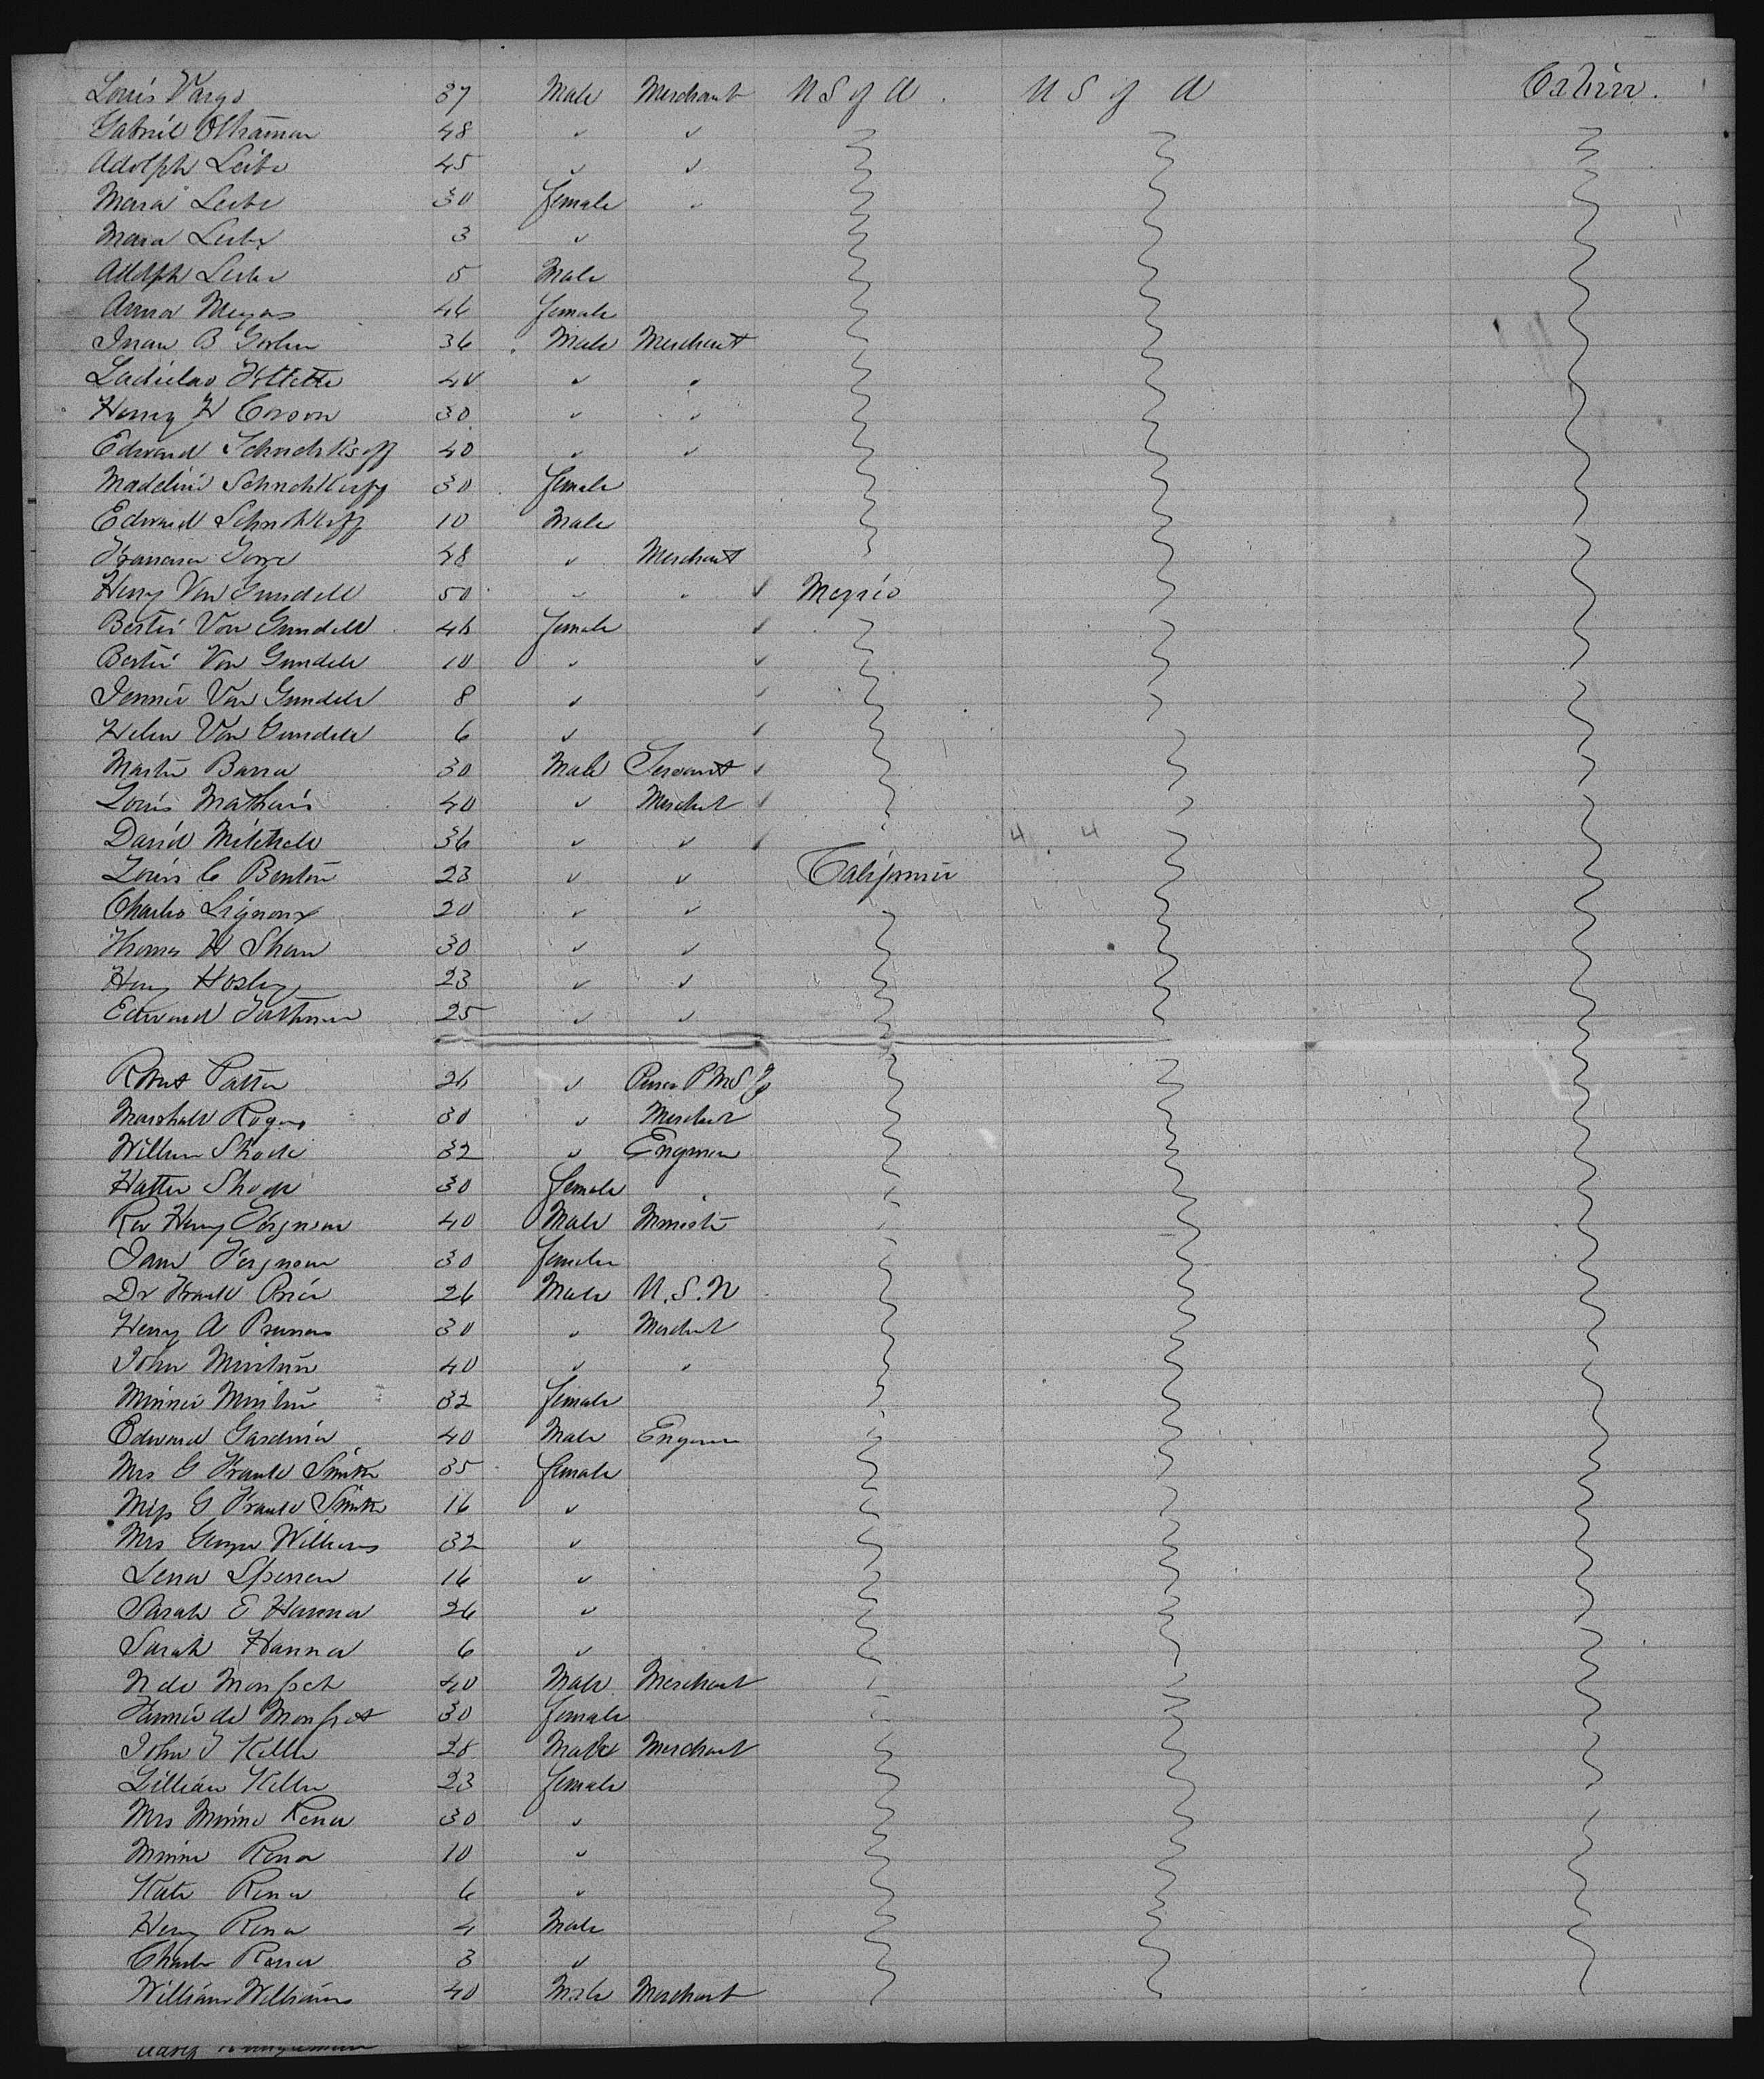 Louis Vargs 37 Male Merchant U S of A. U S of A Cabin.
Gabriel 48 ✓ ✓
Adolph Leibe 45 ✓ ✓
Maria Leibe 30 female ✓
Maria Leibe 3 ✓
Adolph Leibe 5 Male
Anna Meyers 46 female
B 36 Male Merchant
Ladislao 40 ✓ ✓
Henry H 30 ✓ ✓
Edward 40 ✓ ✓
Madeline 30 female
Edward 10 Male
48 ✓ Merchant
Henry Von Gundell 50 ✓ ✓ ✓ Mexico
Bertie Von Gundell 46 female ✓
Bertie Von Gundell 10 ✓ ✓
Jennie Von Gundell 8 ✓ ✓
Helen Von Gundell 6 ✓ ✓
Martin Barra 30 Male Servant ✓
Louis Mathews 40 ✓ Merchant ✓
David Mitchell 36 ✓ ✓ ✓ 4 4
Louis C Benton 23 ✓ ✓ California
Charles 20 ✓ ✓
Thomas H Shaw 30 ✓ ✓
Henry Hosley 23 ✓ ✓
Edward 25 ✓ ✓
Robert Patton 26 ✓ Purser P M S
Marshall Rogers 30 ✓ Merchant
William Shode 32 ✓ Engineer
Hattie Shode 30 female
Rev Henry Ferguson 40 Male Minister
Jane Ferguson 30 female
Dr Frank Price 26 Male U.S.N
Henry A 30 ✓ Merchant
John Minturn 40 ✓ ✓
Minnie Minturn 32 female
Edward Gardiner 40 Male Engineer
Mrs G Frank Smith 35 female
Miss G Frank Smith 16 ✓
Mrs George Williams 32 ✓
Lena 16 ✓
Sarah E Hanna 26 ✓
Sarah Hanna 6 ✓
N de Monfret 40 Male Merchant
Fannie de Monfret 30 female
John J Keller 28 Male Merchant
Lillian Keller 23 female
Mrs Minnie Rena 30 ✓
Minnie Rena 10 ✓
Kate Rena 6 ✓
Henry Rena 4 Male
Charles Rena 3 ✓
William Williams 40 Male Merchant